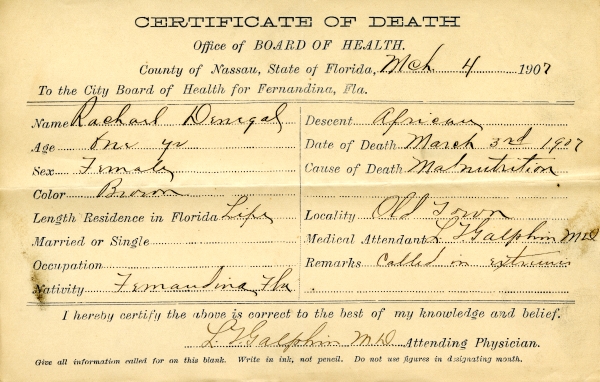 CERTIFICATE OF DEATH
Office of BOARD OF HEALTH.
County of Nassau, State of Florida, Mch 4 1907
To the City Board of Health for Fernandina, Fla.
Name Rachael Denegal
Age One yr
Sex Female
Color Brown
Length Residence in Florida Life
Married or Single
Occupation
Nativity Fernandina Fla
Descent African
Date of Death March 3rd 1907
Cause of Death Malnutrition
Locality Old Town
Medical Attendant L T Galphin M D
Remarks Called in extremis
I hereby certify the above is correct to the best of my knowledge and belief.
L T Galphin M D Attending Physician.
Give all information called for on this blank. Write in ink, not pencil. Do not use figures in designating month.